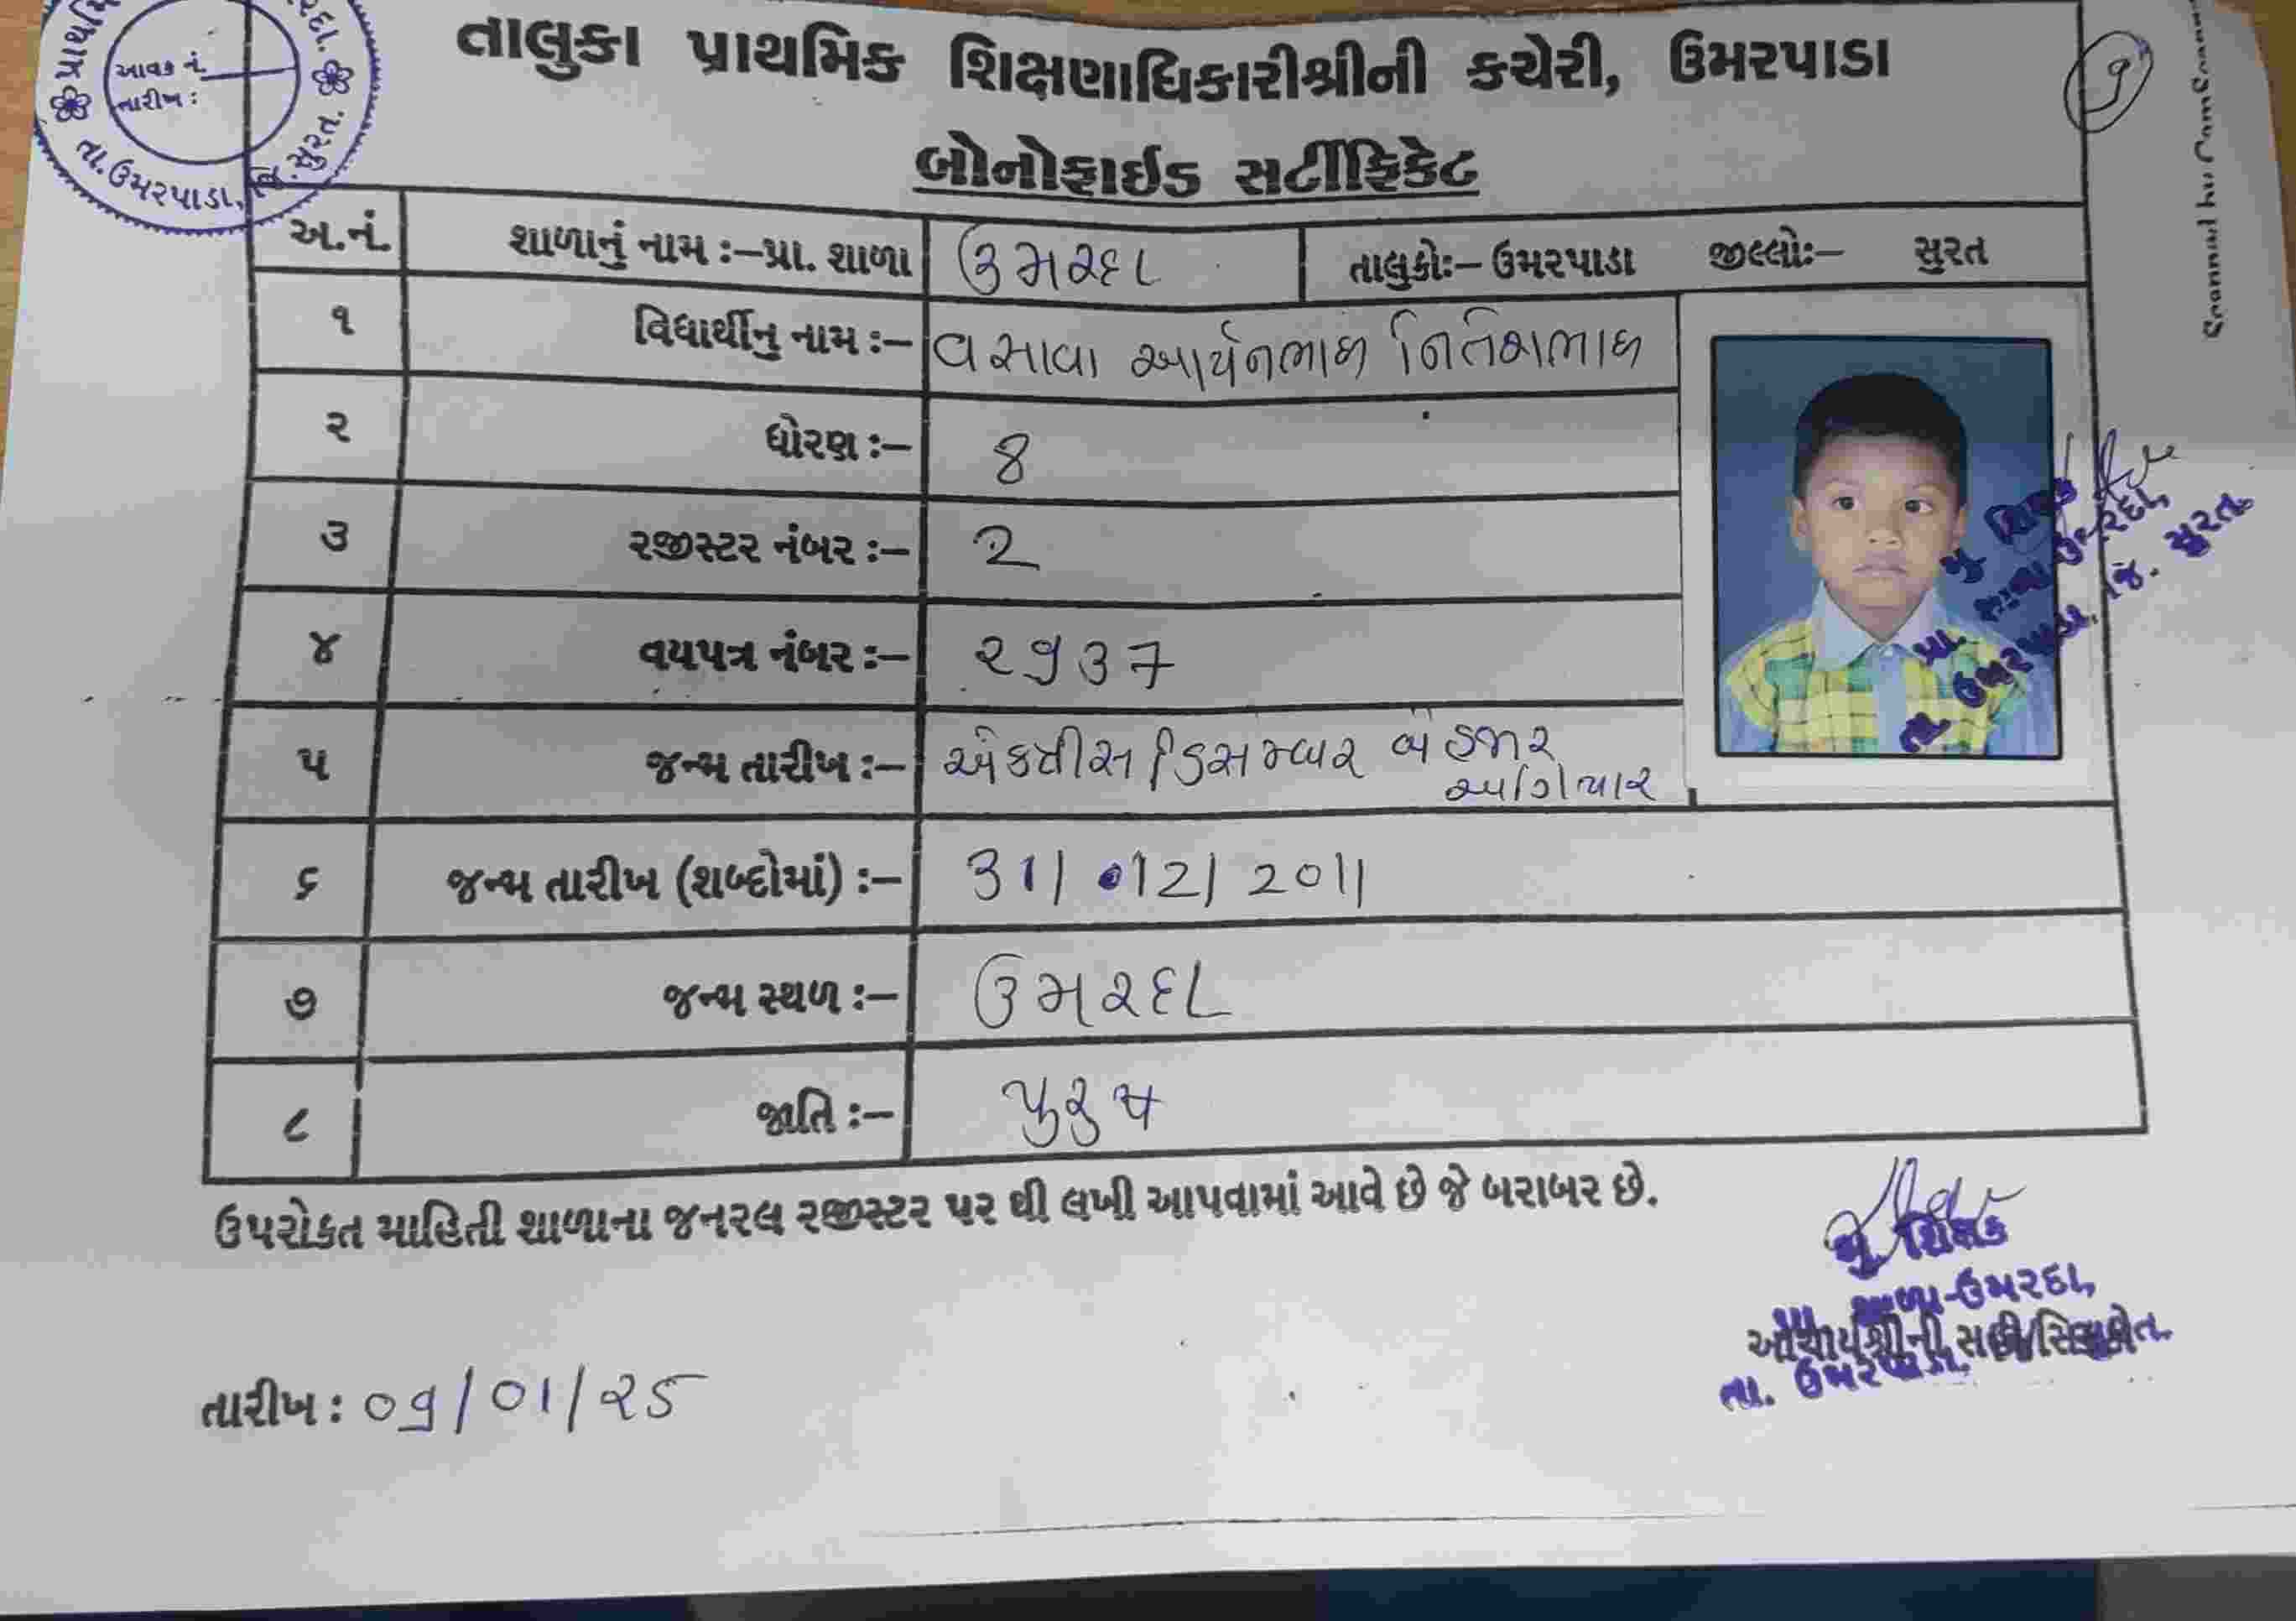 પ્રાથમિ
રદા.
આવક નં.
તારીખ :
તા. ઉમરપાડા, જિ. સુરત.
તાલુકા પ્રાથમિક શિક્ષણાધિકારીશ્રીની કચેરી, ઉમરપાડા
૧
બોનોફાઈડ સર્ટીફિકેટ
અ.નં. શાળાનું નામ :–પ્રા. શાળા ઉમરદા તાલુકોઃ– ઉમરપાડા જીલ્લોઃ– સુરત
૧ વિધાર્થીનુ નામ :– વસાવા આર્યનભાઇ નિતેશભાઇ
૨ ધોરણ :– 8
૩ રજીસ્ટર નંબર :– 2
૪ વયપત્ર નંબર :– ૨૧૩7
૫ જન્મ તારીખ :– એકત્રીસ ડિસમ્બર બે હજાર
અગિયાર
૬ જન્મ તારીખ (શબ્દોમાં) :– 31/12/2011
૭ જન્મ સ્થળ :– ઉમરદા
૮ જાતિ :– પુરુષ
ઉપરોકત માહિતી શાળાના જનરલ રજીસ્ટર પર થી લખી આપવામાં આવે છે જે બરાબર છે.
મુ. શિક્ષક
પ્રા. શાળા-ઉમરદા,
આચાર્યશ્રીની સહી/સિક્કો
તા. ઉમરપાડા, જિ. સુરત.
તારીખ : ૦૧/01/૨૫
Scanned by CamScanner